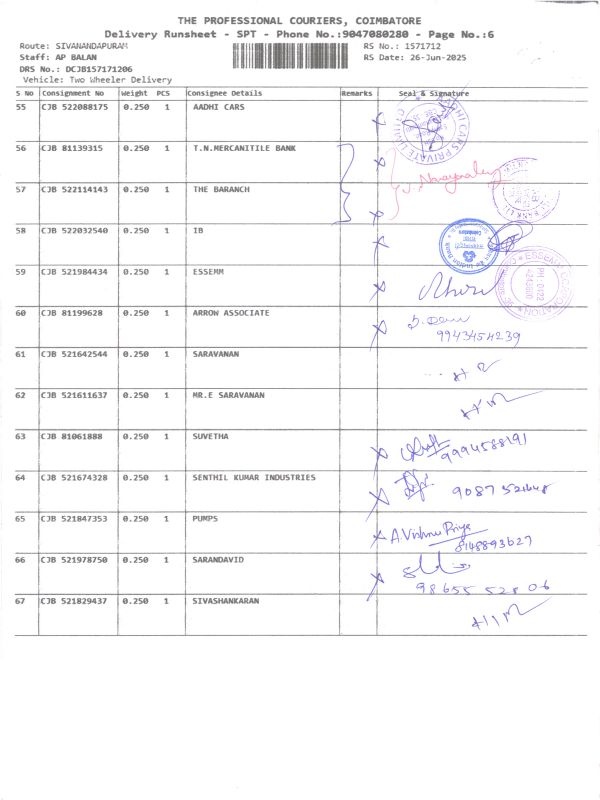 THE PROFESSIONAL COURIERS, COIMBATORE
Delivery Runsheet - SPT - Phone No.:9047080280 - Page No.:6
Route: SIVANANDAPURAM RS No.: 1571712
Staff: AP BALAN RS Date: 26-Jun-2025
DRS No.: DCJB157171206
Vehicle: Two Wheeler Delivery
S No Consignment No Weight PCS Consignee Details Remarks Seal & Signature
55 CJB 522088175 0.250 1 AADHI CARS
56 CJB 81139315 0.250 1 T.N.MERCANITILE BANK
57 CJB 522114143 0.250 1 THE BARANCH
58 CJB 522032540 0.250 1 IB
59 CJB 521984434 0.250 1 ESSEMM
60 CJB 81199628 0.250 1 ARROW ASSOCIATE
9943454239
61 CJB 521642544 0.250 1 SARAVANAN
62 CJB 521611637 0.250 1 MR.E SARAVANAN
63 CJB 81061888 0.250 1 SUVETHA
9994588191
64 CJB 521674328 0.250 1 SENTHIL KUMAR INDUSTRIES
65 CJB 521847353 0.250 1 PUMPS A. Vishnu Priya
8148893627
66 CJB 521978750 0.250 1 SARANDAVID
98655 52806
67 CJB 521829437 0.250 1 SIVASHANKARAN